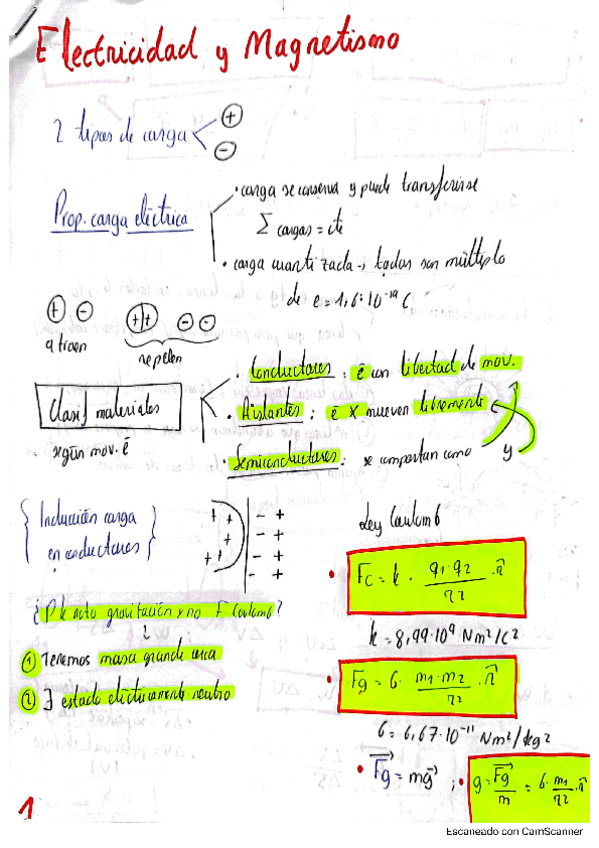 Electricidad y Magnetismo
2 tipos de carga < (+) (-)
Prop. carga eléctrica
· carga se conserva y puede transferirse
Σ cargas = cte
· carga cuantizada → todas son múltiplo
de e = 1,6·10⁻¹⁹ C
(+) (-) (+)(+) (-)(-)
atraen repelen
Clasif materiales
según mov. ē
· Conductores : ē con libertad de mov.
· Aislantes : ē X mueven libremente
· Semiconductores : se comportan como ↑ y
{ Inducción carga
en conductores }
+ + + + + + - + - + - + - +
Ley Coulomb
· Fc = k · q1·q2 / r2 · r̂
k = 8,99·10⁹ Nm²/C²
¿Pk noto gravitación y no F. Coulomb?
① Tenemos masa grande cerca
② ∃ estado eléctricamente neutro
· Fg = G · m1·m2 / r2 · r̂
G = 6,67·10⁻¹¹ Nm²/kg2
· Fg = mg ; · g = Fg / m = G · m1 / r2 · r̂
1
Escaneado con CamScanner